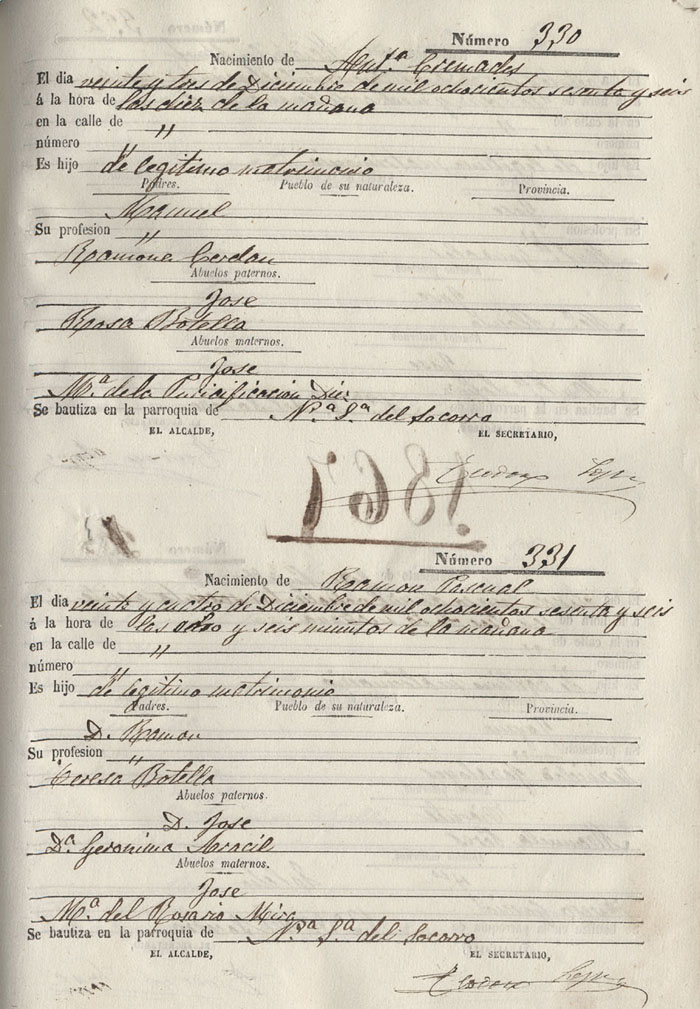 Número 330
Nacimiento de Ant.ª Cremades
El dia veinte y tres de Diciembre de mil ochocientos sesenta y seis
á la hora de las diez de la mañana
en la calle de "
número
Es hijo de legitimo matrimonio
Padres. Pueblo de su naturaleza. Provincia.
Manuel
Su profesion "
Ramona Cerdan
Abuelos paternos.
Jose
Rosa Botella
Abuelos maternos.
Jose
M.ª de la Purificacion
Se bautiza en la parroquia de N.ª S.ª del Socorro
EL ALCALDE, EL SECRETARIO,
1867
Número 331
Nacimiento de Ramon Pascual
El dia veinte y cuatro de Diciembre de mil ochocientos sesenta y seis
á la hora de las ocho y seis minutos de la mañana
en la calle de "
número "
Es hijo de legitimo matrimonio
Padres. Pueblo de su naturaleza. Provincia.
D. Ramon
Su profesion "
Teresa Botella
Abuelos paternos.
D. Jose
D.ª Geronima Aracil
Abuelos maternos.
Jose
M.ª del Rosario Mira
Se bautiza en la parroquia de N.ª S.ª del Socorro
EL ALCALDE, EL SECRETARIO,